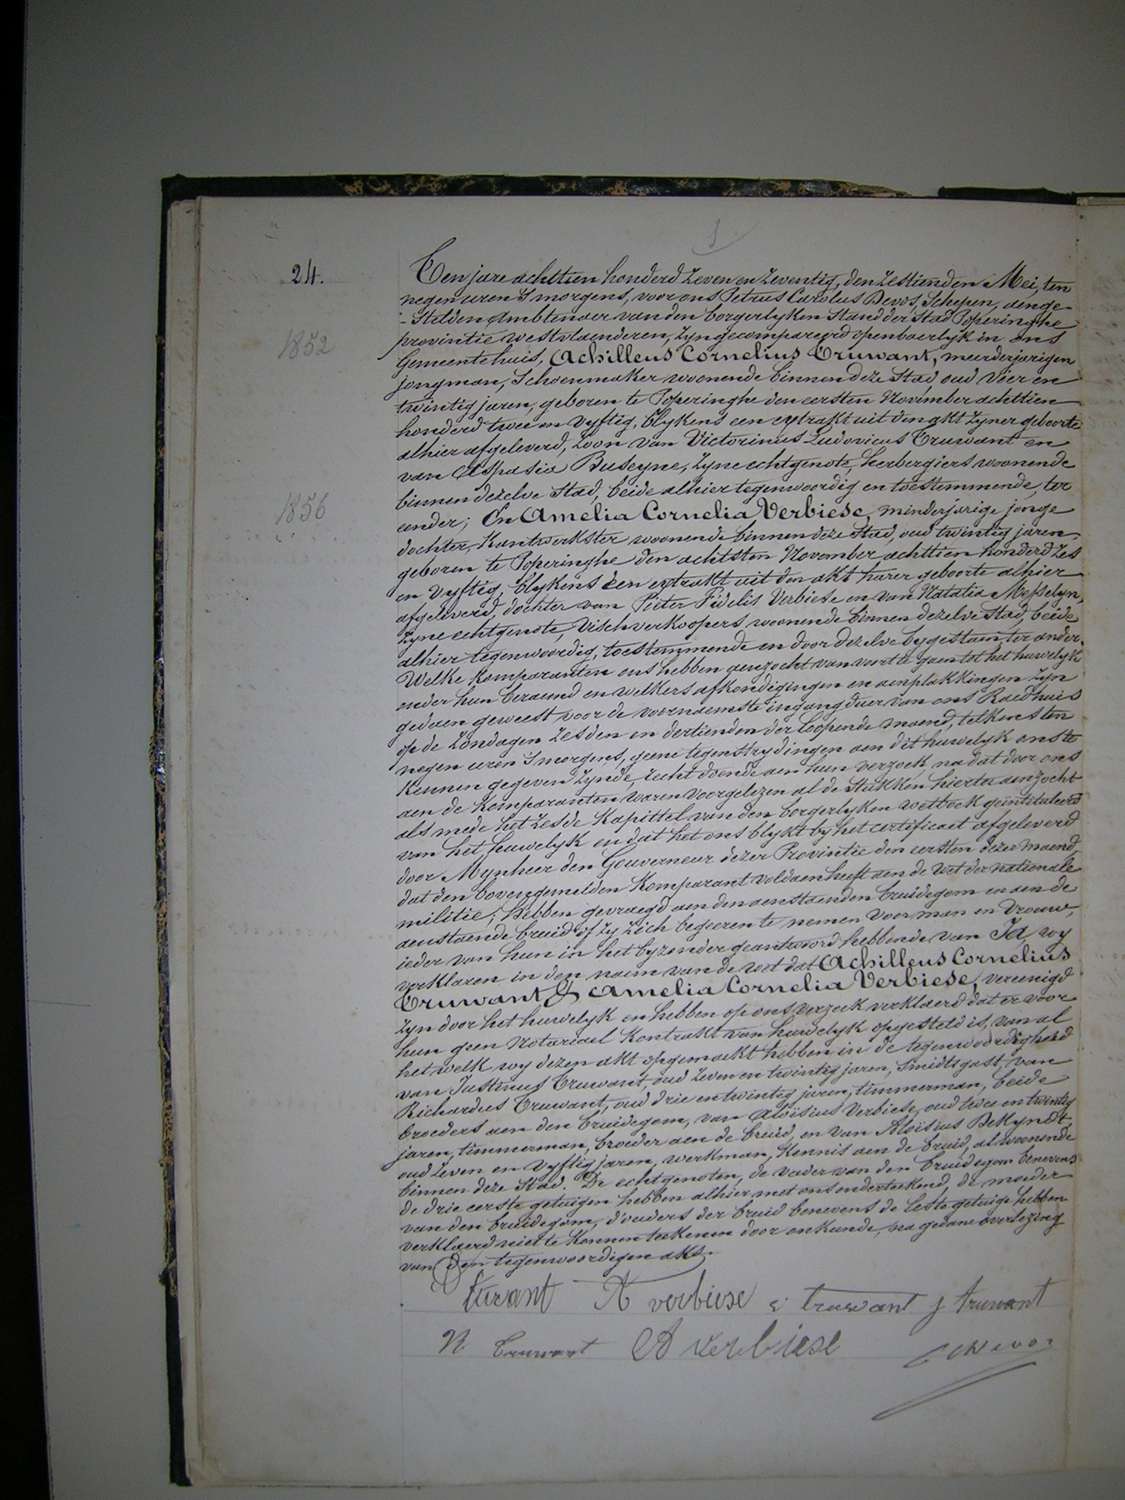 24.
Ten jare achttien honderd zeven en zeventig, den zestienden Mei, ten
negen uren 's morgens, voor ons Petrus Carolus Devos, Schepen, aenge-
-stelden Ambtenaer van den borgerlyken Stand der stad Poperinghe
provintie westvlaenderen, zyn gecompareerd openbaerlyk in ons
1852
Gemeentehuis, Achilleus Cornelius Truwant, meerderjarigen
jongman, Schoenmaker woonende binnen deze Stad, oud vier en
twintig jaren, geboren te Poperinghe den eersten November achttien
honderd twee en vyftig, blykens een extrakt uit den akt zyner geboorte
alhier afgeleverd, zoon van Victorinus Ludovicus Truwant en
van Aspasia Buseyne, zyne echtgenote, herbergiers woonende
binnen dezelve Stad, beide alhier tegenwoordig en toestemmende, ter
1856
eender; En Amelia Cornelia Verbiese, minderjarige jonge
dochter, Kantwerkster woonende binnen deze Stad, oud twintig jaren,
geboren te Poperinghe den achtsten November achttien honderd zes
en vyftig, blykens een extrakt uit den akt harer geboorte alhier
afgeleverd, dochter van Pieter Fidelis Verbiese en van Natalia Messelyn,
zyne echtgenote, vischverkoopers, woonende binnen dezelve Stad, beide
alhier tegenwoordig, toestemmende en door dezelve bygestaen, ter ander.
Welke Komparanten ons hebben aenzocht van voort te gaen tot het huwelyk
onder hun beraemd en welkers afkondigingen en aenplakkingen zyn
gedaen geweest voor de voornaemste ingangdeur van ons Raedhuis
op de zondagen zesden en dertienden der loopende maend, telkens ten
negen uren 's morgens, geene tegenstrydingen aen dit huwelyk ons te
kennen gegeven zynde, recht doende aen hun verzoek, na dat door ons
aen de Komparanten waren voorgelezen al de Stukken hiertoe aenzocht
als mede het zesde Kapittel van den borgerlyken wetboek geïntituleerd
van het huwelyk en dat het ons blykt by het certificaet afgeleverd
door Mynheer den Gouverneur dezer Provintie den eersten dezer maend,
dat den bovengemelden Komparant voldaen heeft aen de Wet der nationale
militie; Hebben gevraegd aen den aenstaenden bruidegom en aen de
aenstaende bruid of zy zich begeeren te nemen voor man en vrouw,
ieder van hun in het byzonder geantwoord hebbende van Ja, wy
verklaren in den naem van de wet dat Achilleus Cornelius
Truwant & Amelia Cornelia Verbiese, vereenigd
zyn door het huwelyk en hebben op ons verzoek verklaerd dat er voor
hun geen Notariael Kontrakt van huwelyk opgesteld is, van al
het welk wy dezen akt opgemaekt hebben in de tegenwoordigheid
van Justinus Truwant, oud zeven en twintig jaren, Smidtsgast, van
Richardus Truwant, oud drie en twintig jaren, timmerman, beide
broeders aen den bruidegom, van Aloïsius Verbiese, oud twee en twintig
jaren, timmerman, broeder aen de bruid, en van Aloïsius DeKyndt,
oud zeven en vyftig jaren, werkman, Kennis aen de bruid, al woonende
binnen deze Stad. De echtgenoten, de vader van den bruidegom benevens
de drie eerste getuigen hebben alhier met ons onderteekend, de moeder
van den bruidegom, d'ouders der bruid benevens de leste getuige hebben
verklaerd niet te konnen teekenen door onkunde, na gedane overlezing
van den tegenwoordigen akt.
A verbiese truwant j truwant
Truwant A verbiese